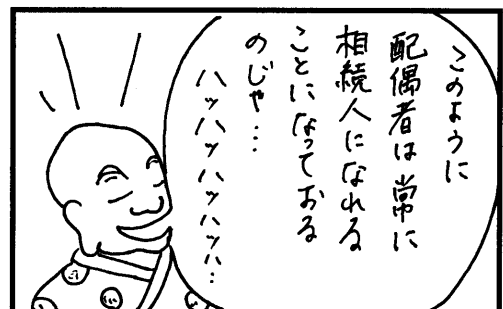 このように
配偶者は常に
相続人になれる
ことになっておる
のじゃ…
ハッハッハッハッハ…